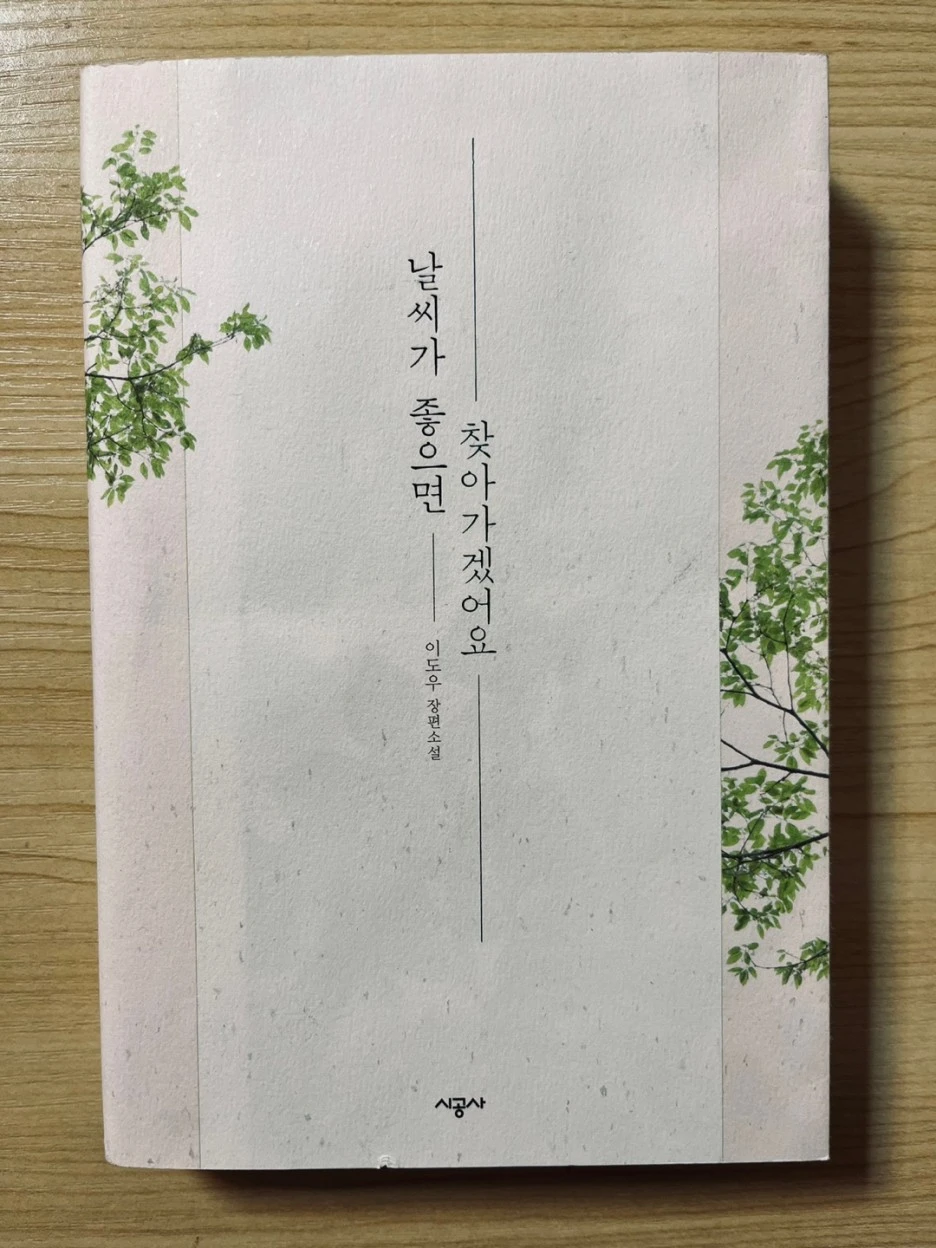 날씨가 좋으면
찾아가겠어요
이도우 장편소설
시공사